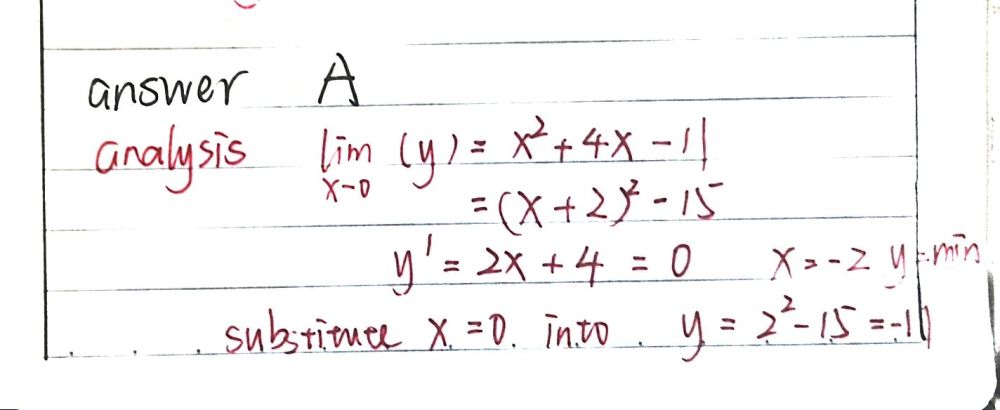 answer A
analysis lim (y) = x²+4x-11
x-0
=(x+2)²-15
y' = 2x+4 = 0 x=-2 y=min
substitute x=0. into. y = 2²-15=-11